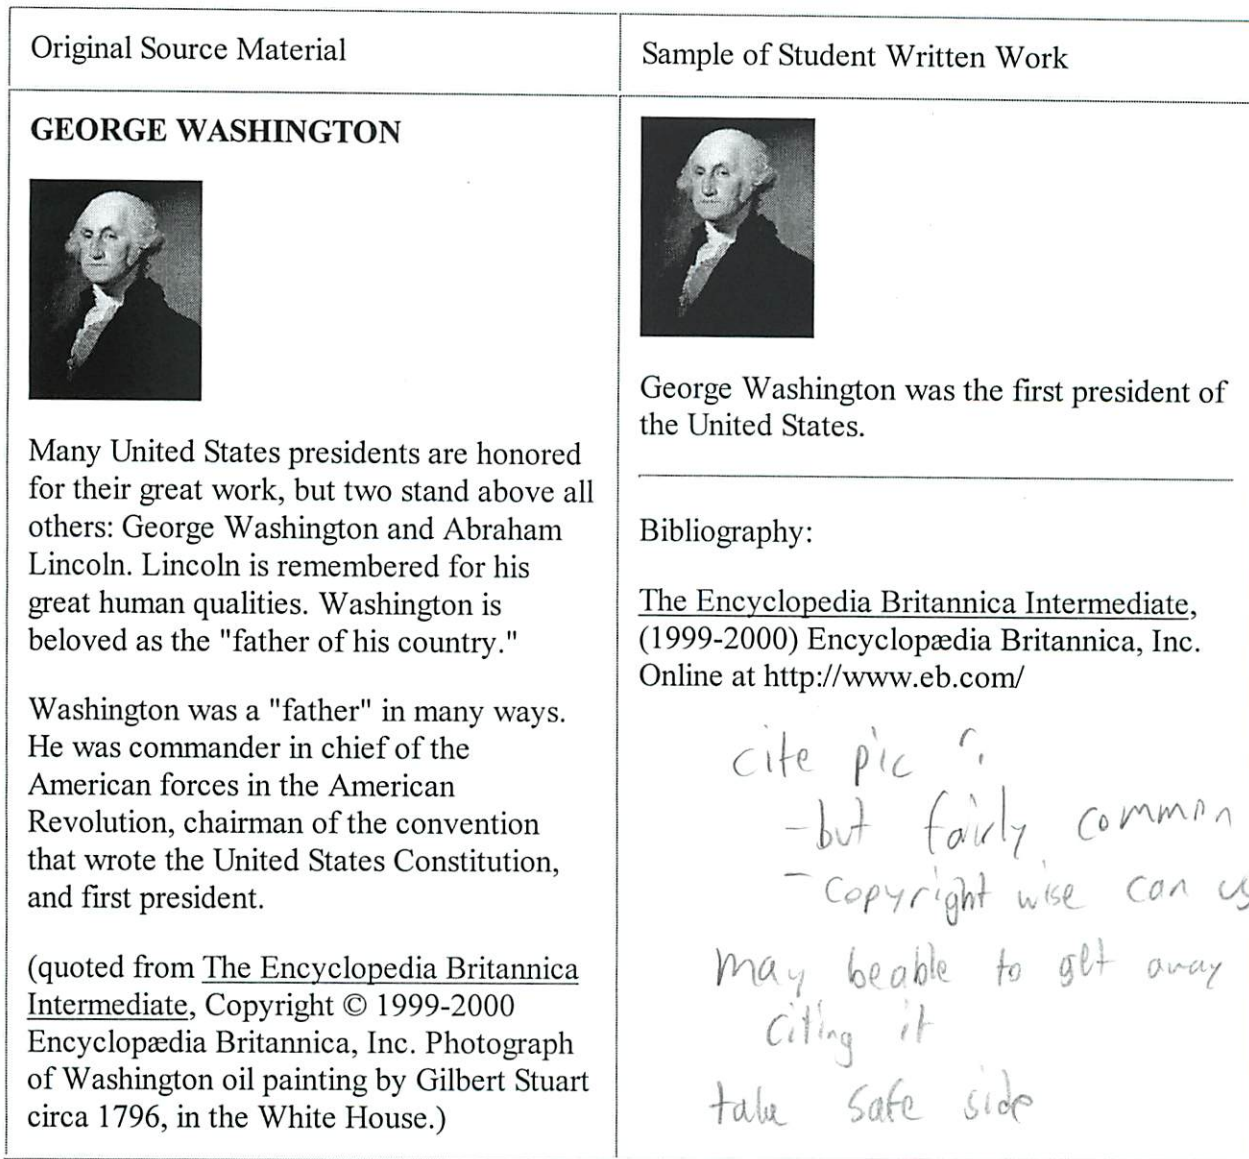 Original Source Material
Sample of Student Written Work
GEORGE WASHINGTON
Many United States presidents are honored
for their great work, but two stand above all
others: George Washington and Abraham
Lincoln. Lincoln is remembered for his
great human qualities. Washington is
beloved as the "father of his country."
Washington was a "father" in many ways.
He was commander in chief of the
American forces in the American
Revolution, chairman of the convention
that wrote the United States Constitution,
and first president.
(quoted from The Encyclopedia Britannica
Intermediate, Copyright © 1999-2000
Encyclopædia Britannica, Inc. Photograph
of Washington oil painting by Gilbert Stuart
circa 1796, in the White House.)
George Washington was the first president of
the United States.
Bibliography:
The Encyclopedia Britannica Intermediate,
(1999-2000) Encyclopædia Britannica, Inc.
Online at http://www.eb.com/
cite pic ?
-but fairly common
- copyright wise can us
may beable to get away
citing it
take safe side